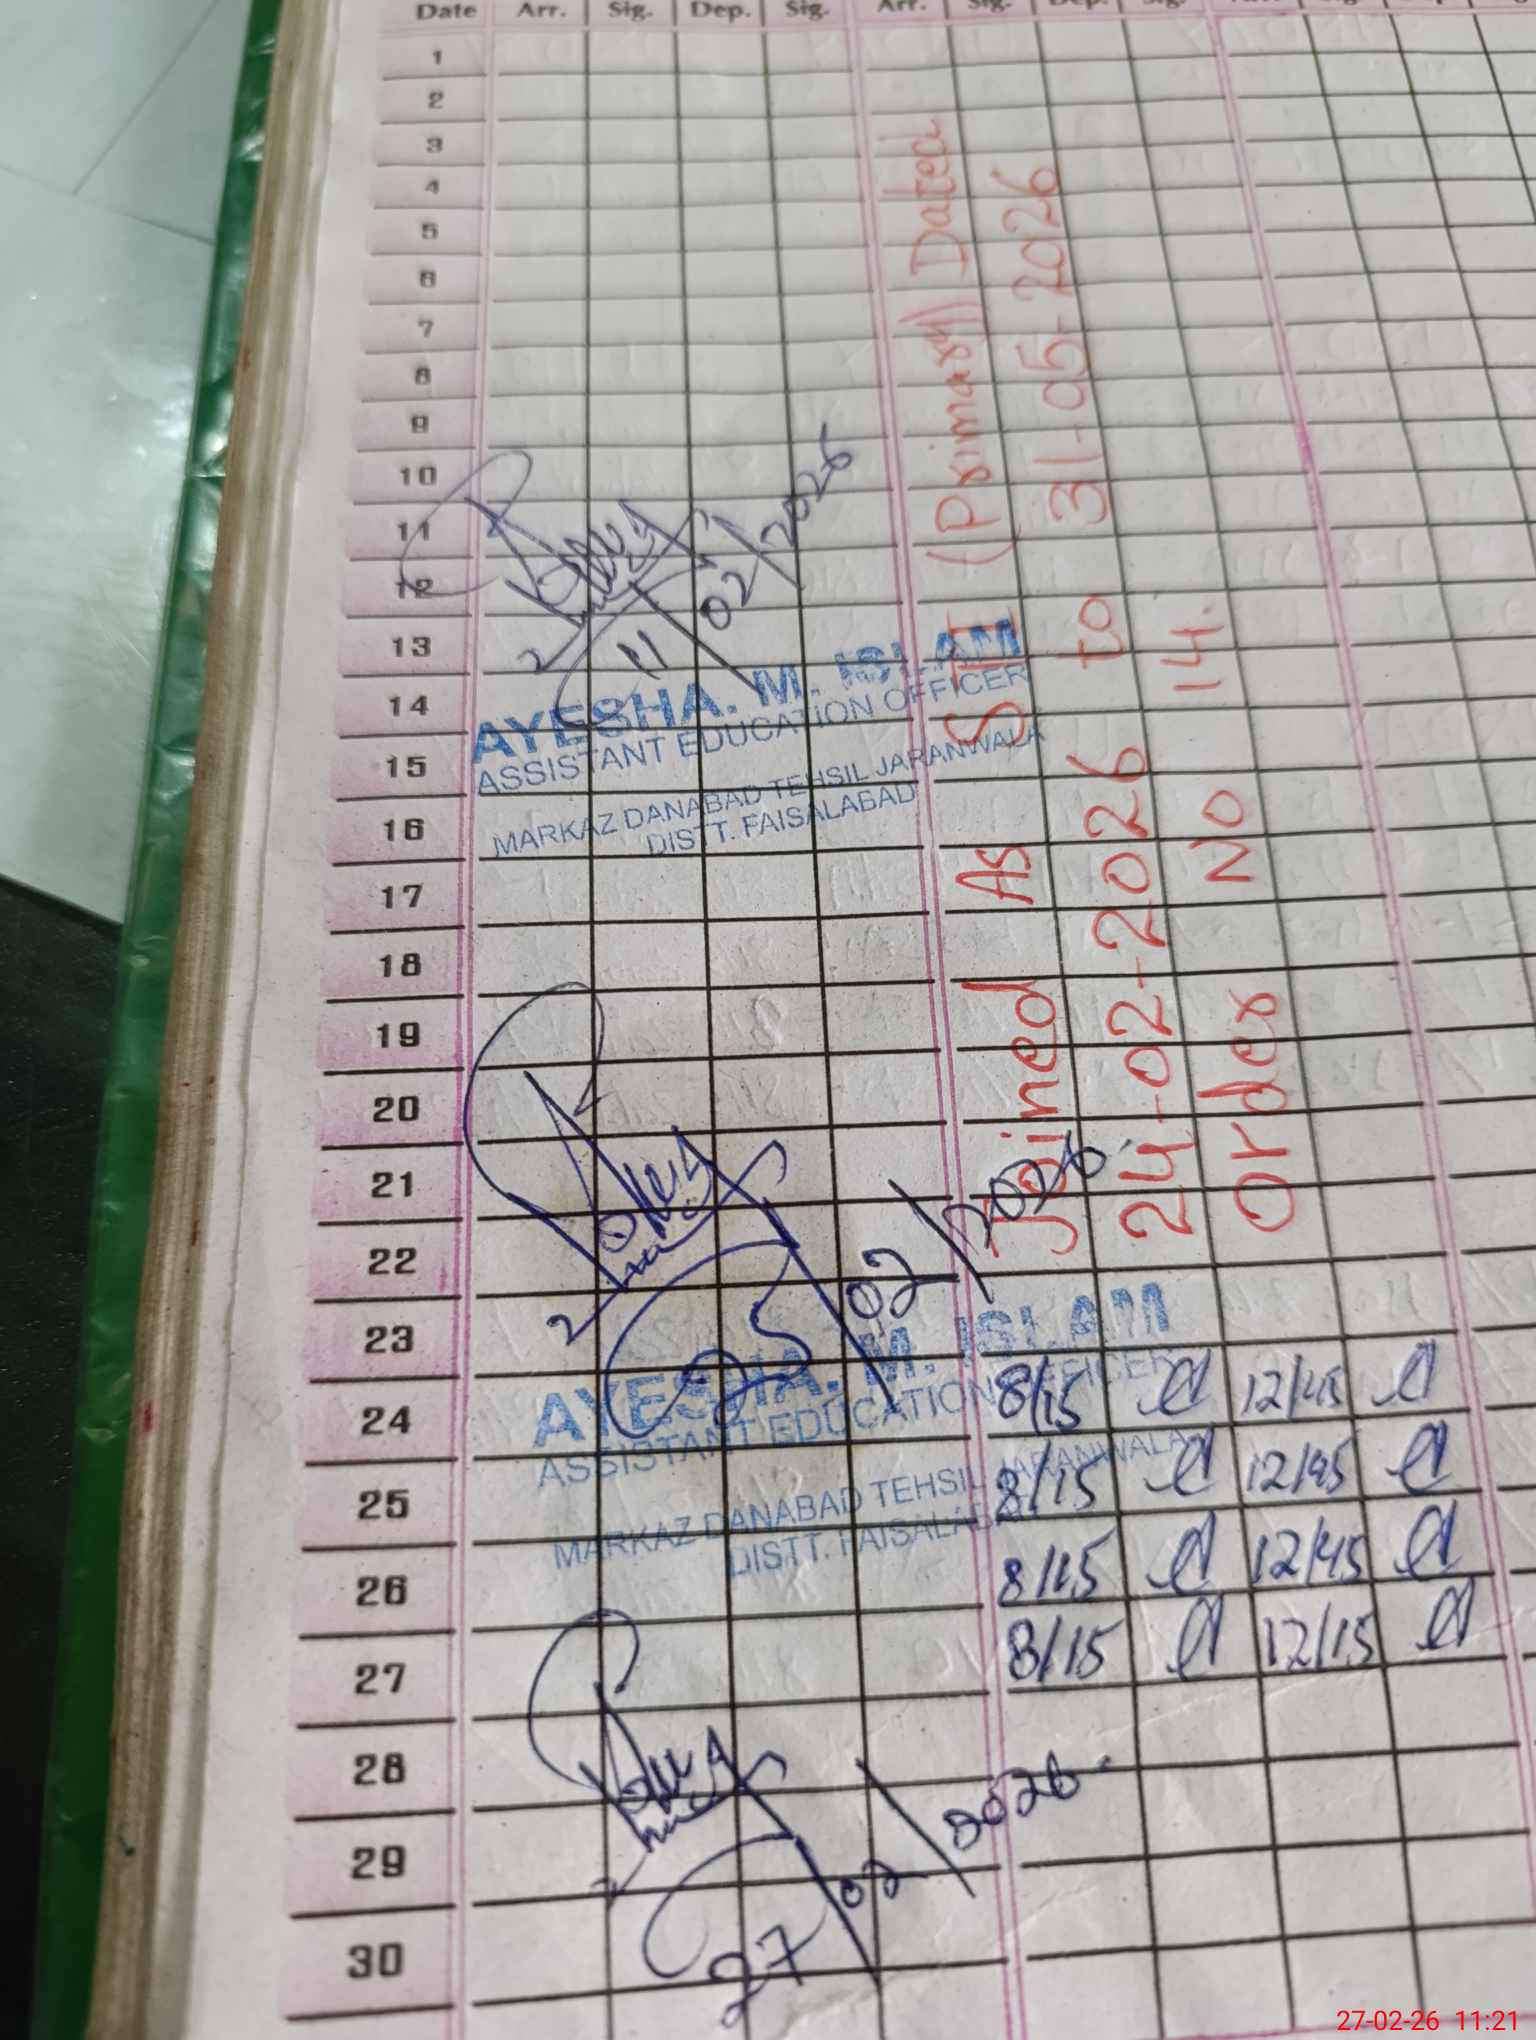 Date Arr. Sig. Dep. Sig. Arr. Sig. Dep. Sig.
1
2
3
4
5
6
7
8
9
10
11
12
13
14
15
16
17
18
19
20
21
22
23
24 8/15 12/45
25 8/15 12/45
26 8/15 12/45
27 8/15 12/15
28
29
30
11/02/2026
AYESHA. M. ISLAM
ASSISTANT EDUCATION OFFICER
MARKAZ DANABAD TEHSIL JARANWALA
DISTT. FAISALABAD
02/2026
AYESHA. M. ISLAM
ASSISTANT EDUCATION OFFICER
MARKAZ DANABAD TEHSIL JARANWALA
DISTT. FAISALABAD
27/02/2026
Joined As STI (Primary) Dated
24-02-2026 to 31-05-2026
Order NO 14.
27-02-26 11:21